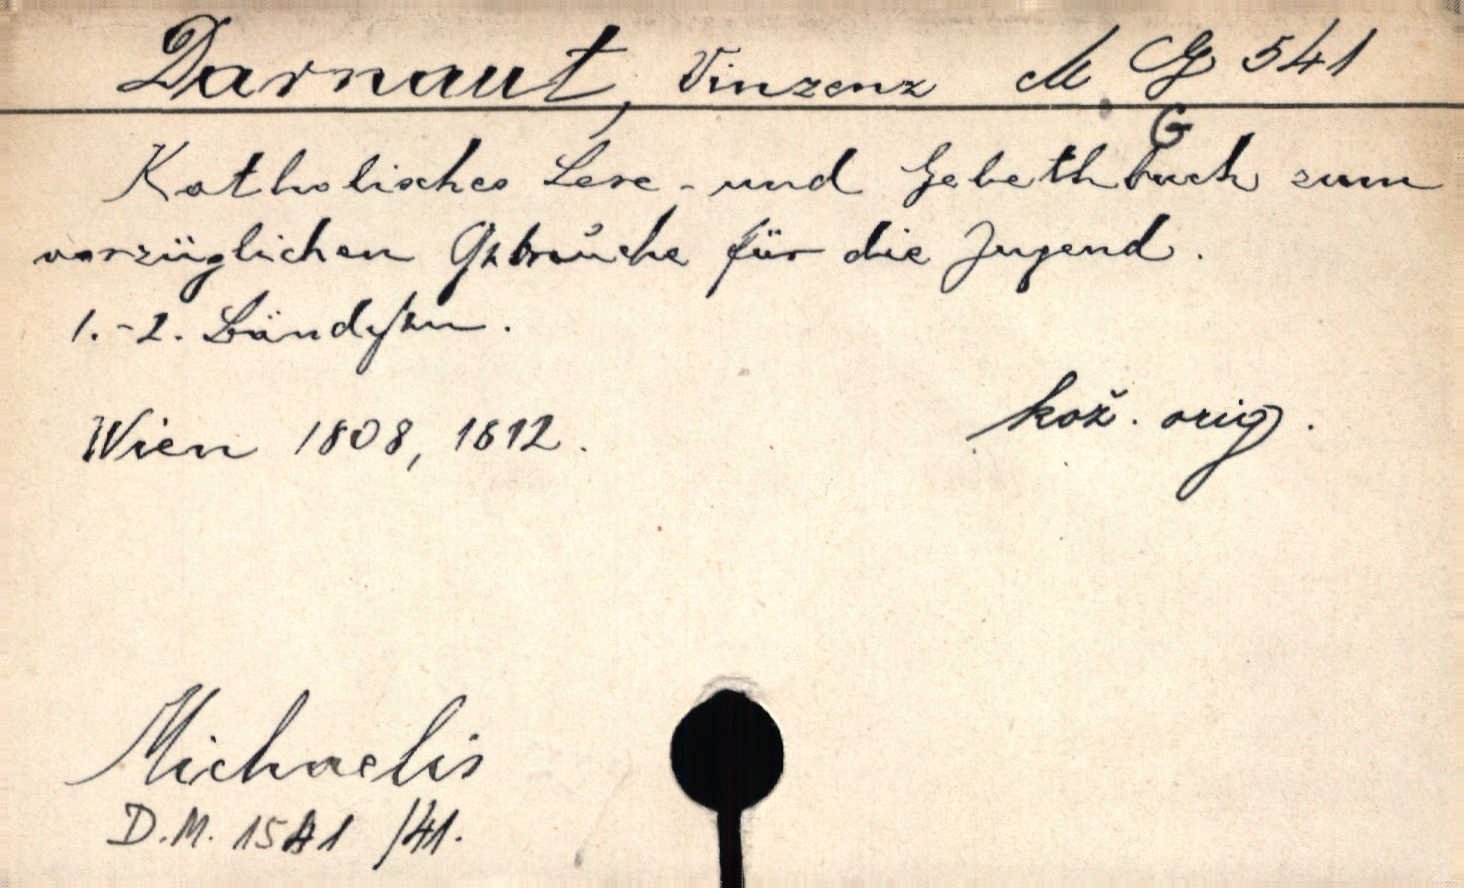 Darnaut, Vinzenz M G 541
G
Katholisches Lese- und Gebethbuch zum
vorzüglichen Gebrauche für die Jugend.
1.-2. Bändchen.
Wien 1808, 1812.
kož. orig.
Michaelis
D.M. 1541 /41.